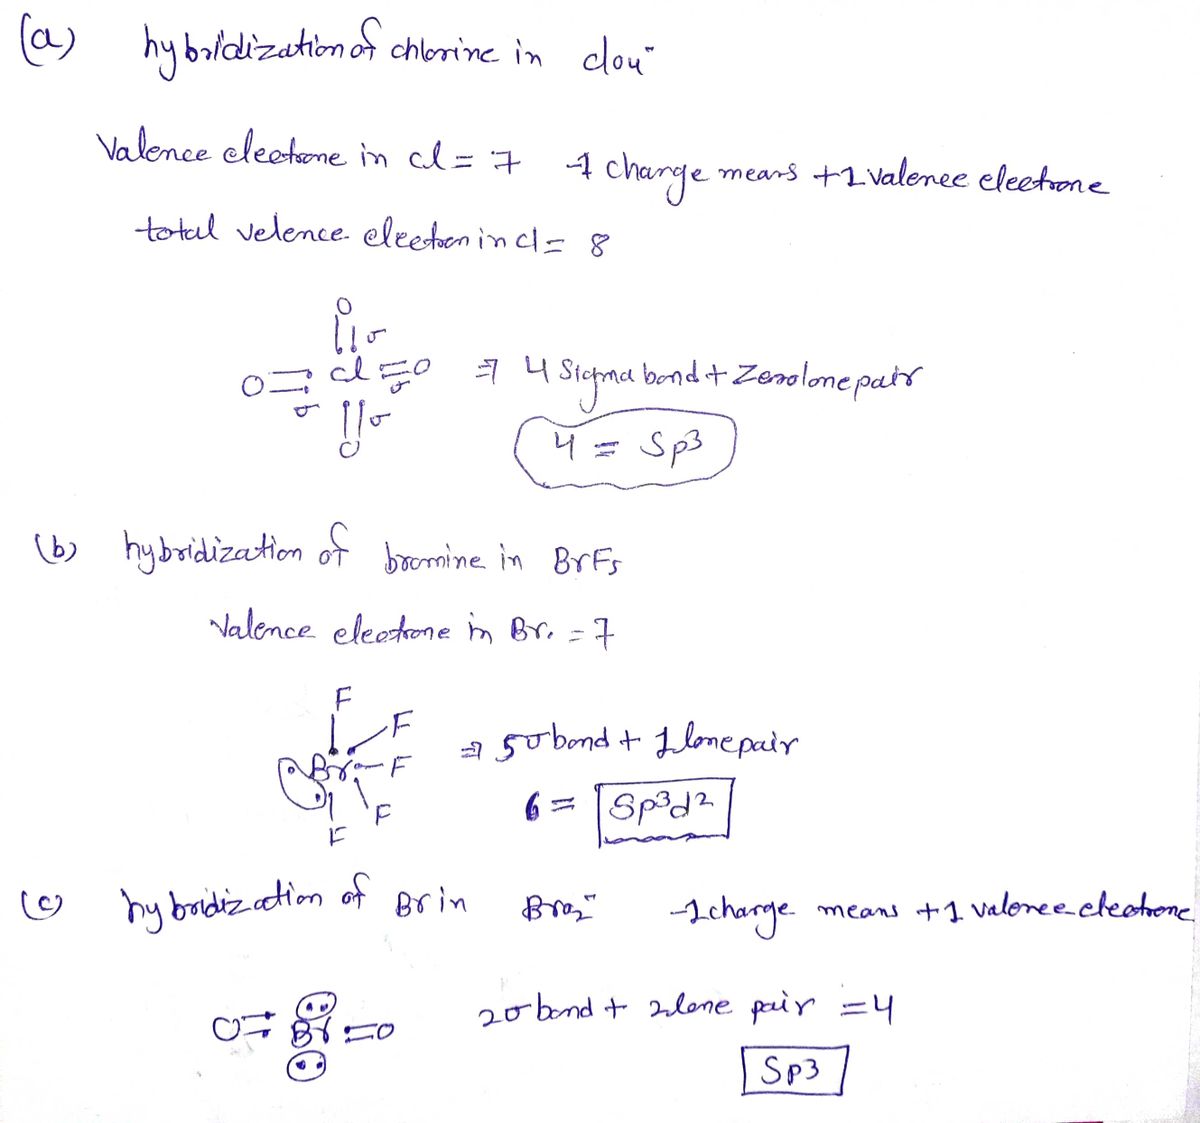 (a) hybridization of chlorine in clo4⁻
Valence electrone in cl = 7 -1 charge means +1 valence electrone
total velence electron in cl = 8
O
σ
O = cl = O ⇒ 4 Sigma bond + Zero lone pair
σ σ
σ
O
4 = Sp3
(b) hybridization of bromine in BrF5
Valence electrone in Br. = 7
F
F
Br - F ⇒ 5σ bond + 1 lone pair
F
F
6 = Sp³d²
(c) hybridization of Br in Bro2⁻ -1 charge means +1 valence electrone
O = Br = O 2σ bond + 2 lone pair = 4
Sp3